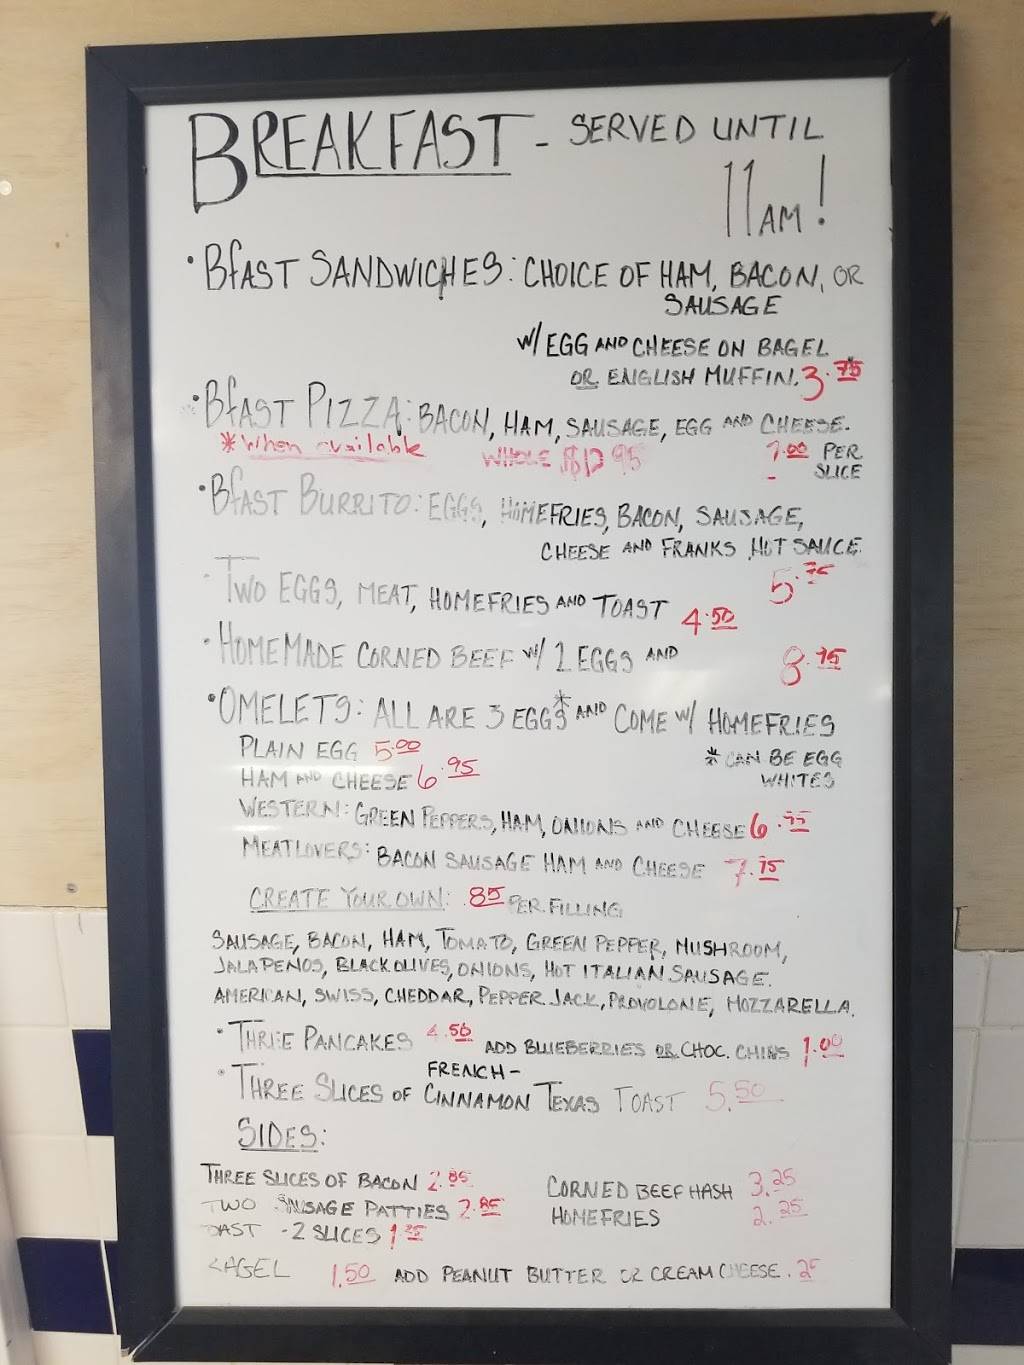 BREAKFAST - SERVED UNTIL
11AM!
• BfAST SANDWICHES: CHOICE OF HAM, BACON, OR
SAUSAGE
W/ EGG AND CHEESE ON BAGEL
OR ENGLISH MUFFIN. 3.75
• BfAST PIZZA: BACON, HAM, SAUSAGE, EGG AND CHEESE.
*When available WHOLE $12.95 .00 PER
SLICE
• BfAST BURRITO: EGGS, HOMEFRIES, BACON, SAUSAGE,
CHEESE AND FRANKS HOT SAUCE
5.75
• TWO EGGS, MEAT, HOMEFRIES AND TOAST 4.50
• HOMEMADE CORNED BEEF W/ 2 EGGS AND 8.75
• OMELETS: ALL ARE 3 EGGS* AND COME W/ HOMEFRIES
PLAIN EGG 5.00
* CAN BE EGG
WHITES
HAM AND CHEESE 6.95
WESTERN: GREEN PEPPERS, HAM, ONIONS AND CHEESE 6.95
MEATLOVERS: BACON SAUSAGE HAM AND CHEESE 7.75
CREATE YOUR OWN: .85 PER FILLING
SAUSAGE, BACON, HAM, TOMATO, GREEN PEPPER, MUSHROOM,
JALAPENOS, BLACK OLIVES, ONIONS, HOT ITALIAN SAUSAGE.
AMERICAN, SWISS, CHEDDAR, PEPPER JACK, PROVOLONE, MOZZARELLA.
• THREE PANCAKES 4.50 ADD BLUEBERRIES OR CHOC. CHIPS 1.00
FRENCH-
• THREE SLICES OF CINNAMON TEXAS TOAST 5.50
SIDES:
THREE SLICES OF BACON 2.85
TWO SAUSAGE PATTIES 2.85
OAST - 2 SLICES 1.25
CORNED BEEF HASH 3.25
HOMEFRIES 2.25
BAGEL 1.50 ADD PEANUT BUTTER OR CREAM CHEESE .25